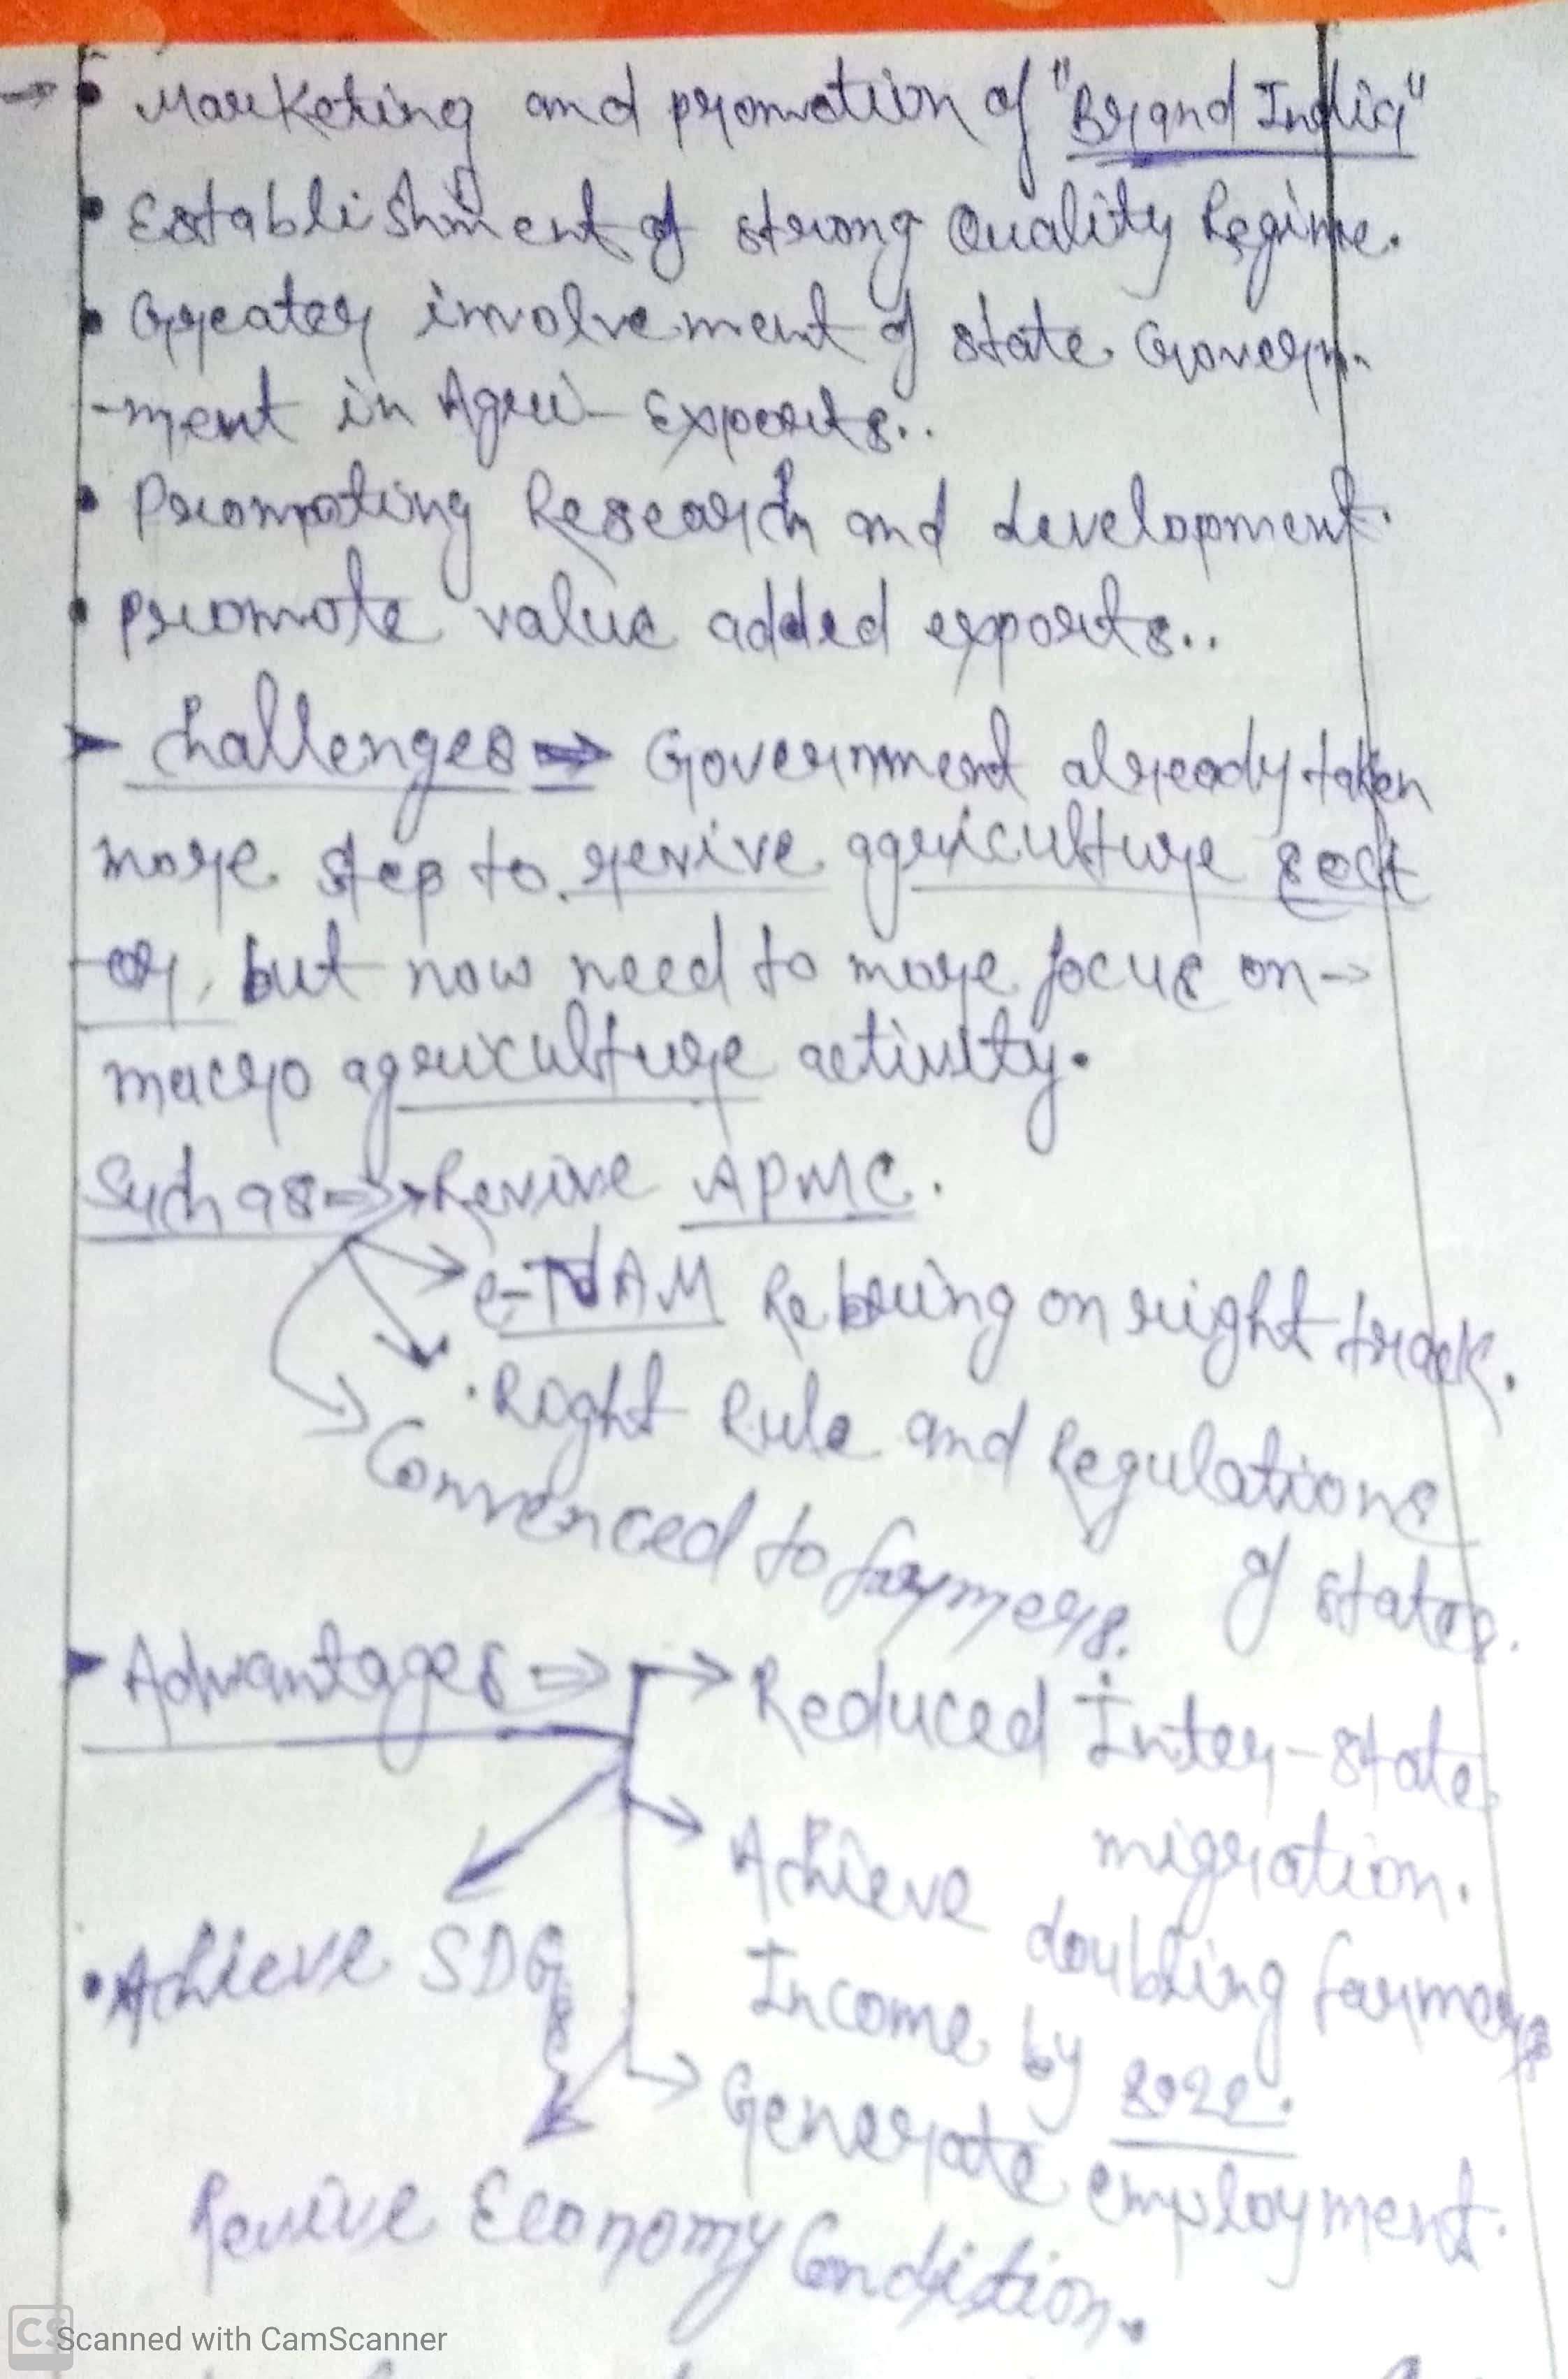 → • Marketing and promotion of "Brand India"
• Establishment of strong Quality Regime.
• Greater involvement of state Govern-
-ment in Agri- Exports..
• Promoting Research and development.
• promote value added exports..
➤ Challenges ⇒ Government already taken
more step to revive agriculture sect
-or, but now need to more focus on →
macro agriculture activity.
Such as ⇒ → Revive APMC.
→ e-NAM Re bring on right track.
→ • Right Rule and Regulations
of states.
→ Convenced to farmers.
➤ Advantages ⇒ → Reduced Inter-state
migration.
→ Achieve doubling farmers
Income by 2022.
• Achieve SDGs
→ Generate employment.
Revive Economy Condition.
CS Scanned with CamScanner